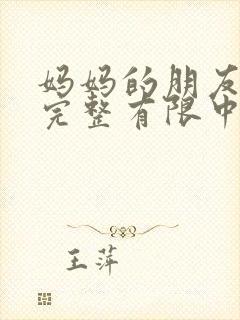 妈妈的朋友
完整有限中
王萍